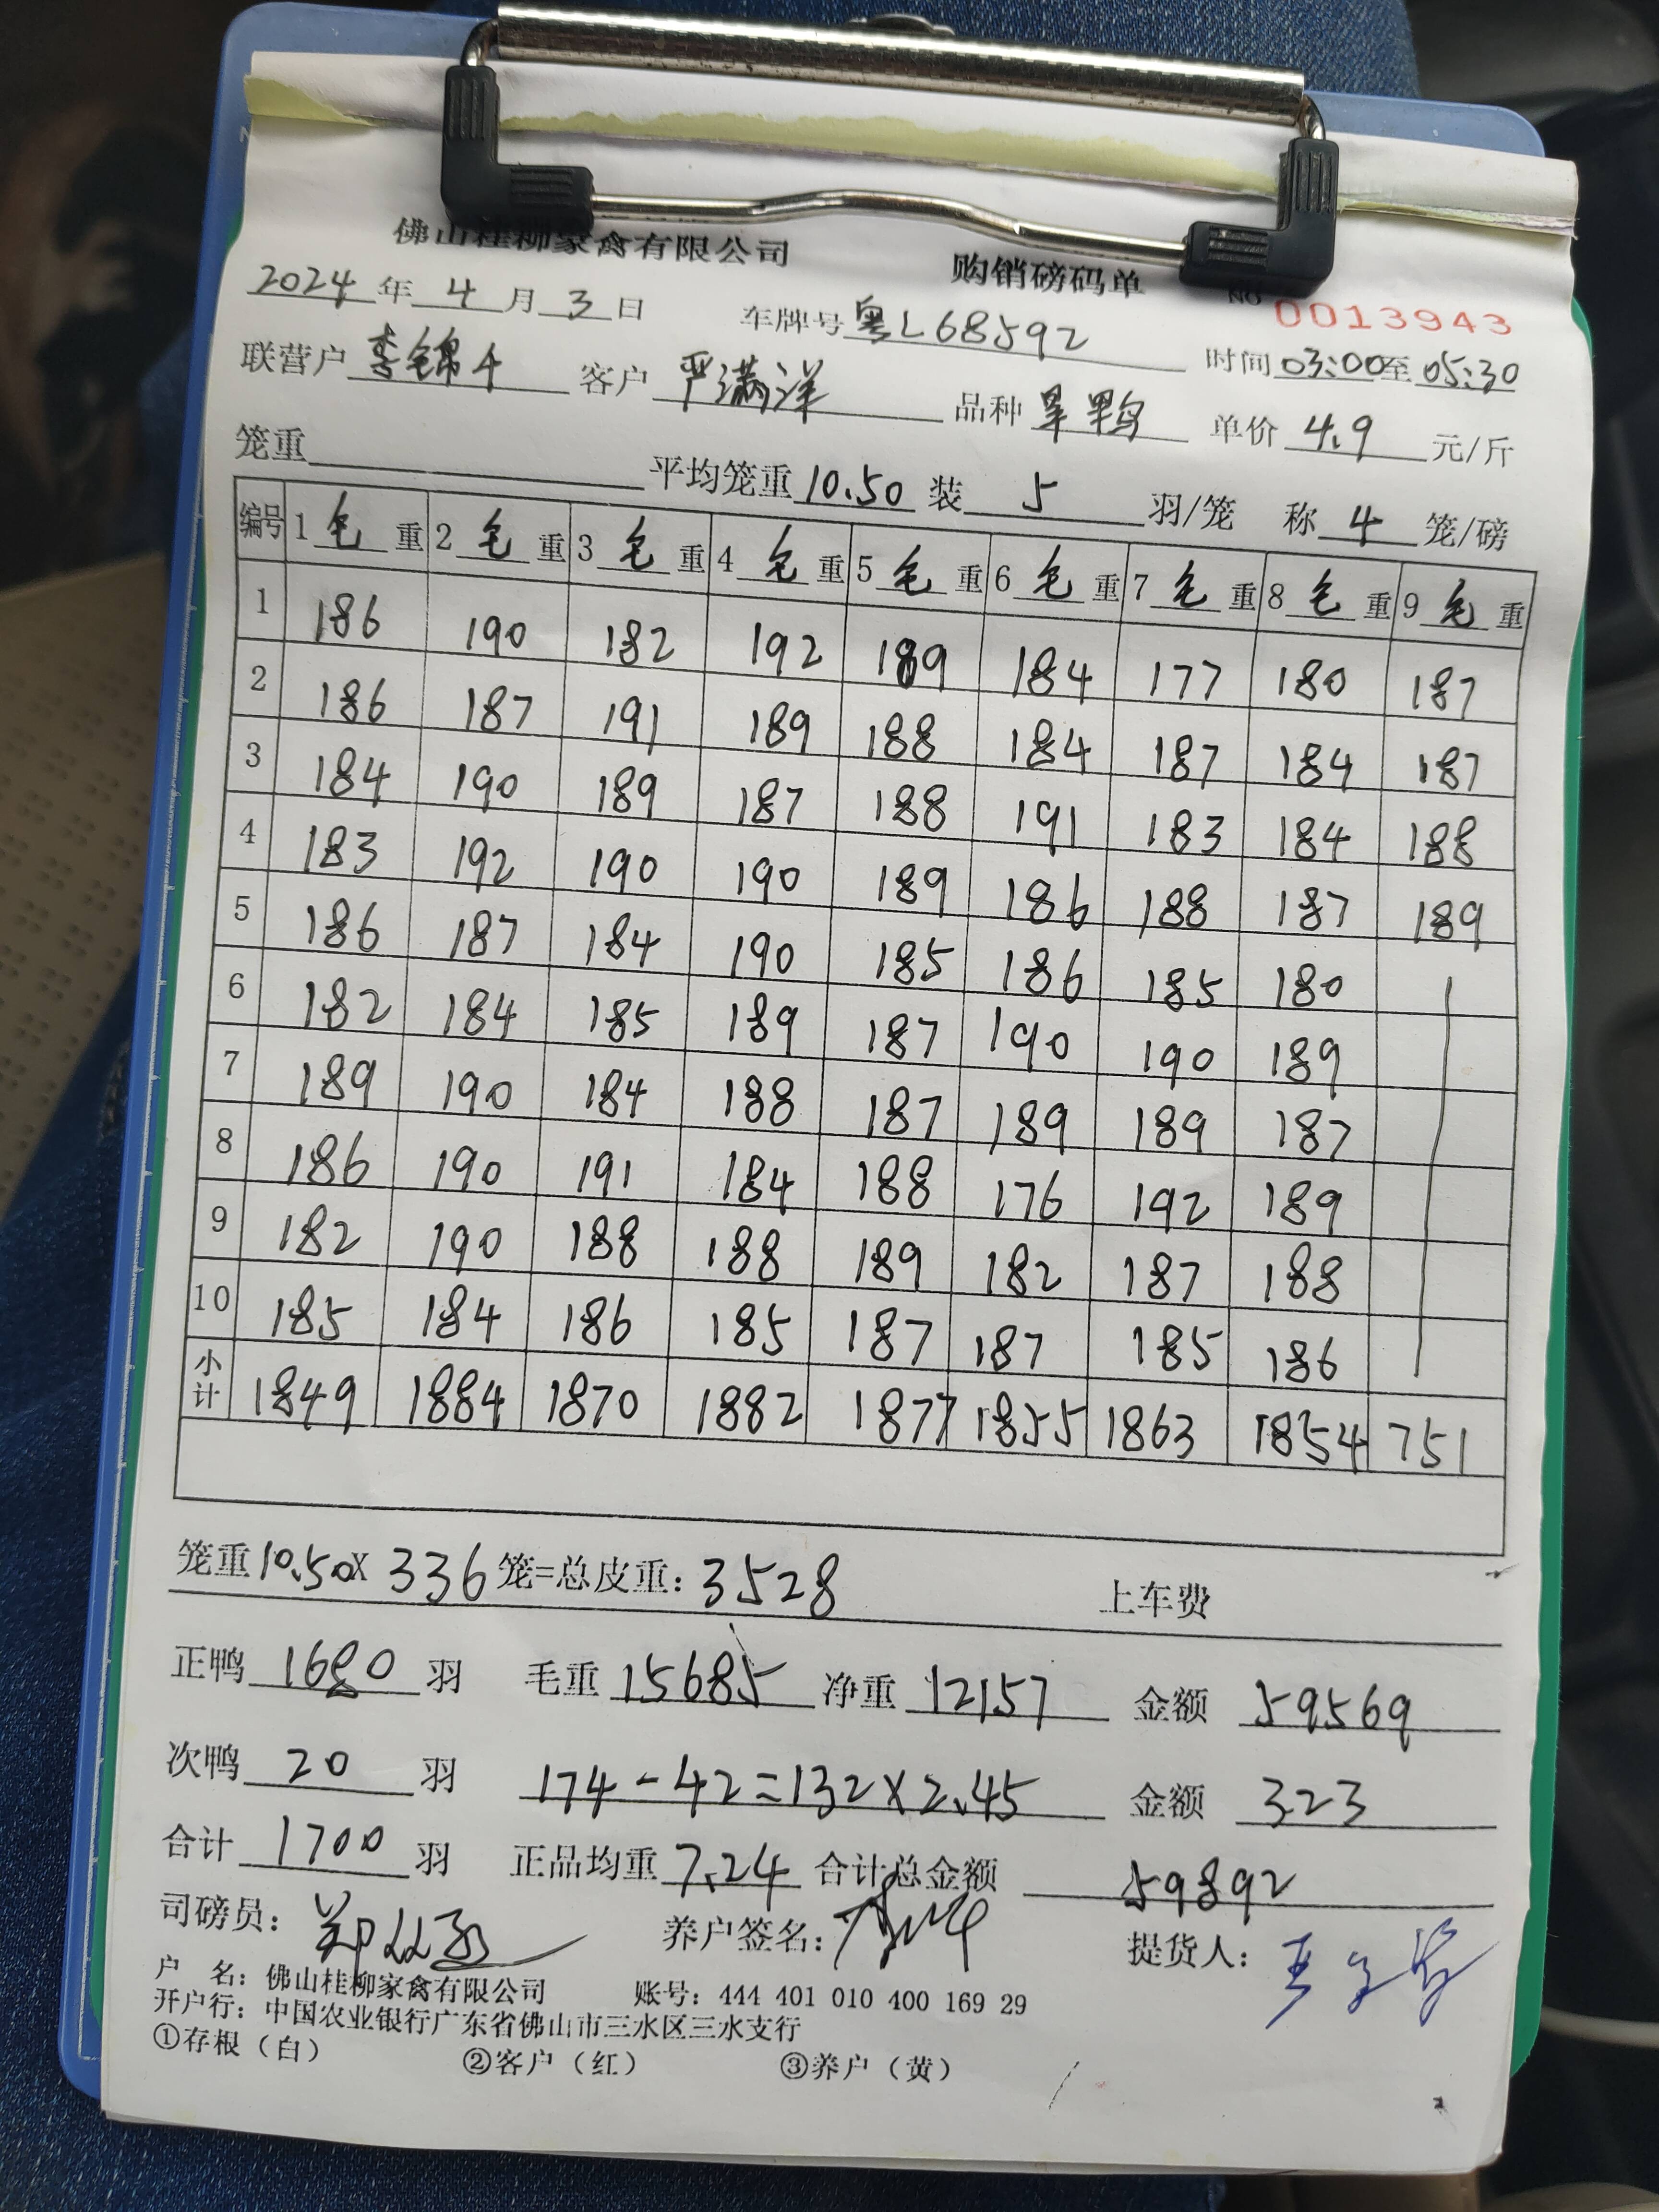 佛山桂柳家禽有限公司 购销磅码单
2024年4月3日 车牌号粤L68592 NO 0013943
联营户李锦牛 客户严满洋 品种旱鸭 时间03:00至05:30
单价4.9元/斤
笼重 平均笼重10.50装5羽/笼 称4笼/磅
编号 1毛重 2毛重 3毛重 4毛重 5毛重 6毛重 7毛重 8毛重 9毛重
1 186 190 182 192 189 184 177 180 187
2 186 187 191 189 188 184 187 184 187
3 184 190 189 187 188 191 183 184 188
4 183 192 190 190 189 186 188 187 189
5 186 187 184 190 185 186 185 180
6 182 184 185 189 187 190 190 189
7 189 190 184 188 187 189 189 187
8 186 190 191 184 188 176 192 189
9 182 190 188 188 189 182 187 188
10 185 184 186 185 187 187 185 186
小计 1849 1884 1870 1882 1877 1855 1863 1854 751
笼重10.50X 336笼=总皮重:3528 上车费
正鸭1680羽 毛重15685 净重12157 金额59569
次鸭20羽 174-42=132×2.45 金额323
合计1700羽 正品均重7.24合计总金额59892
司磅员: 养户签名: 提货人:
户 名:佛山桂柳家禽有限公司 账号:444 401 010 400 169 29
开户行:中国农业银行广东省佛山市三水区三水支行
①存根(白) ②客户(红) ③养户(黄)